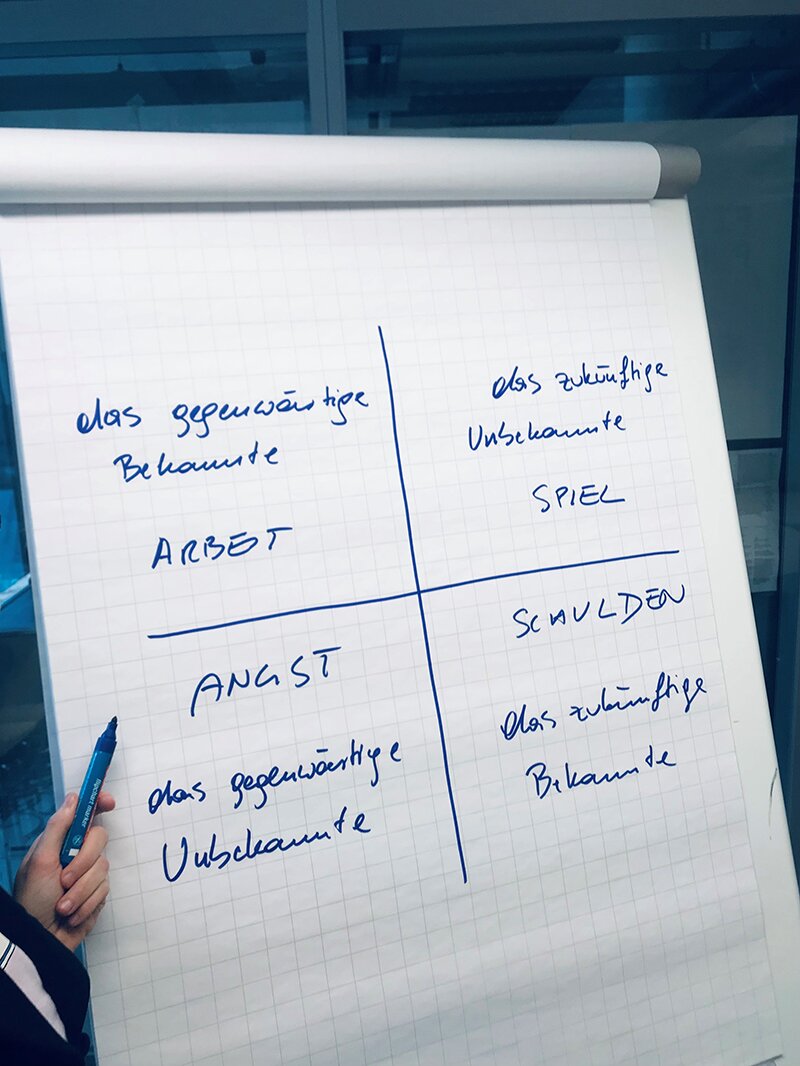 das gegenwärtige
Bekannte
ARBEIT
das zukünftige
Unbekannte
SPIEL
ANGST
das gegenwärtige
Unbekannte
SCHULDEN
das zukünftige
Bekannte
flipchart marker